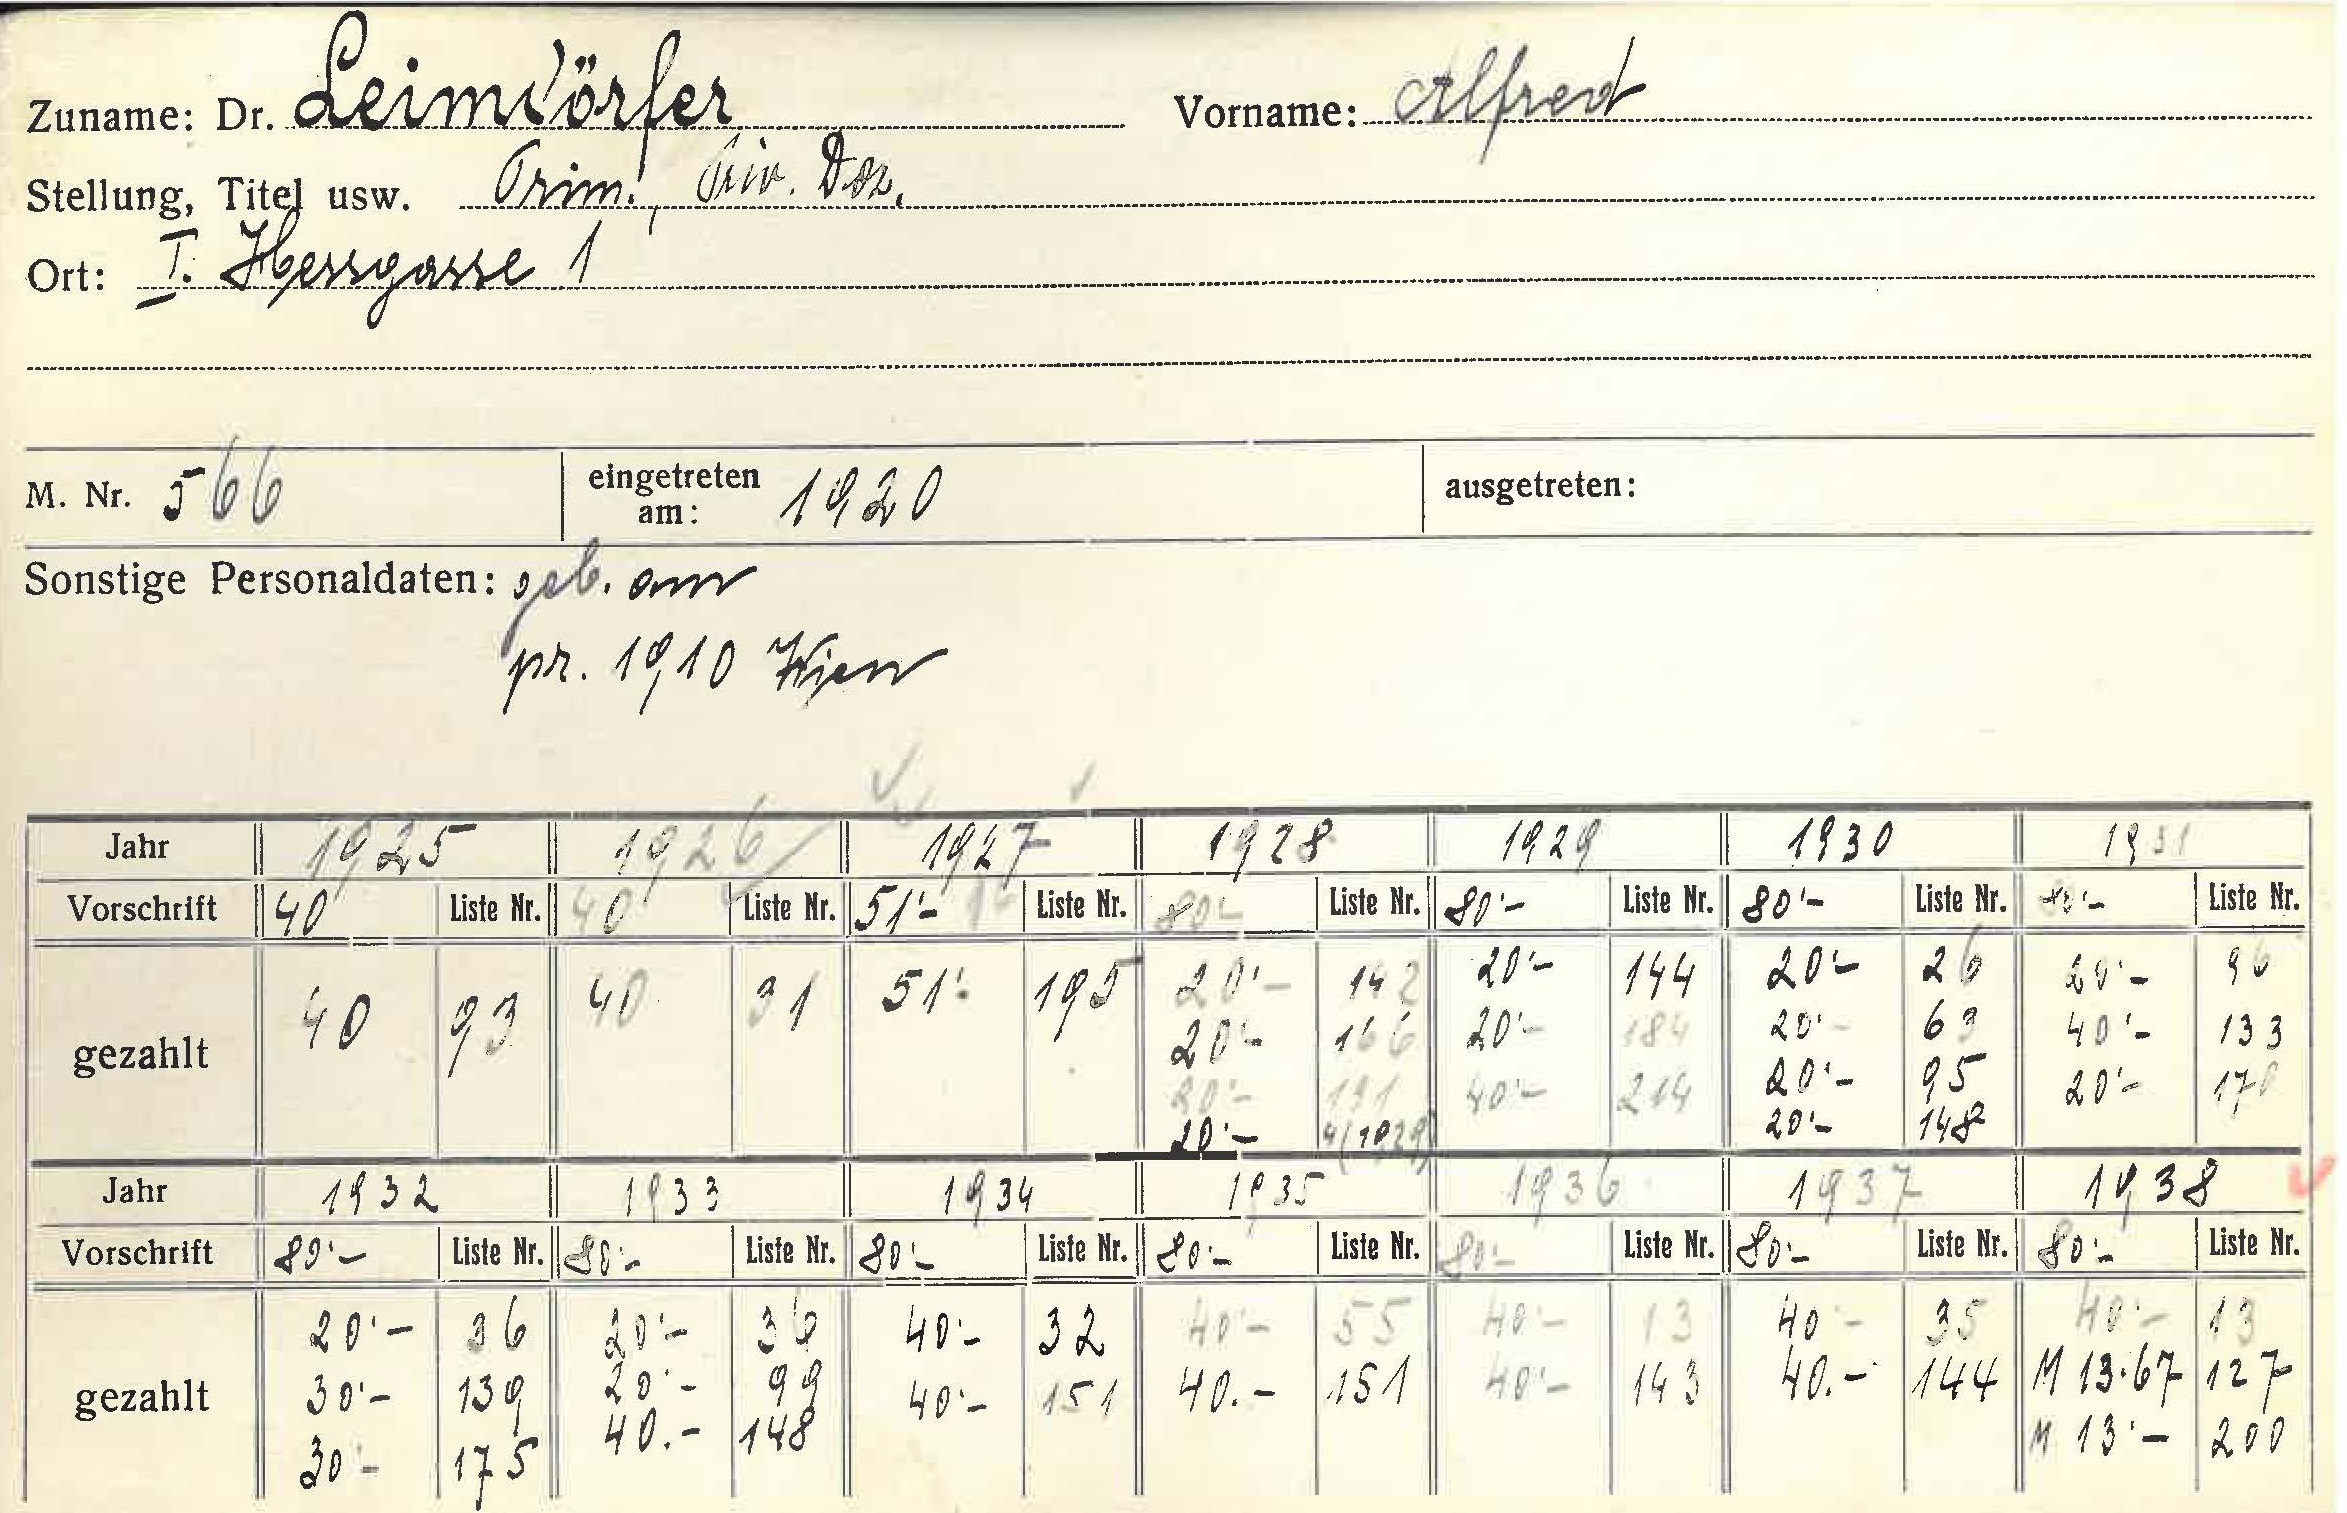 Zuname: Dr. Leimdörfer Vorname: Alfred
Stellung, Titel usw. Prim., Priv. Doz.
Ort: I. Hessgasse 1
M. Nr. 566 eingetreten am: 1920 ausgetreten:
Sonstige Personaldaten: geb. am
pr. 1910 Wien
Jahr 1925 1926 1927 1928 1929 1930 1931
Vorschrift 40 Liste Nr. 40 Liste Nr. 51'- Liste Nr. 80'- Liste Nr. 80'- Liste Nr. 80'- Liste Nr. 80'- Liste Nr.
gezahlt
40 93 40 31 51'- 195 20'- 142 20'- 144 20'- 26 20'- 96
20'- 166 20'- 184 20'- 63 40'- 133
20'- 191 40'- 214 20'- 95 20'- 170
20'- 4 (1929) 20'- 148
Jahr 1932 1933 1934 1935 1936 1937 1938
Vorschrift 80'- Liste Nr. 80'- Liste Nr. 80'- Liste Nr. 80'- Liste Nr. 80'- Liste Nr. 80'- Liste Nr. 80'- Liste Nr.
gezahlt
20'- 36 20'- 36 40'- 32 40'- 55 40'- 13 40'- 35 40'- 13
30'- 139 20'- 99 40'- 151 40.- 151 40'- 143 40.- 144 M 13.67 127
30'- 175 40.- 148 M 13'- 200